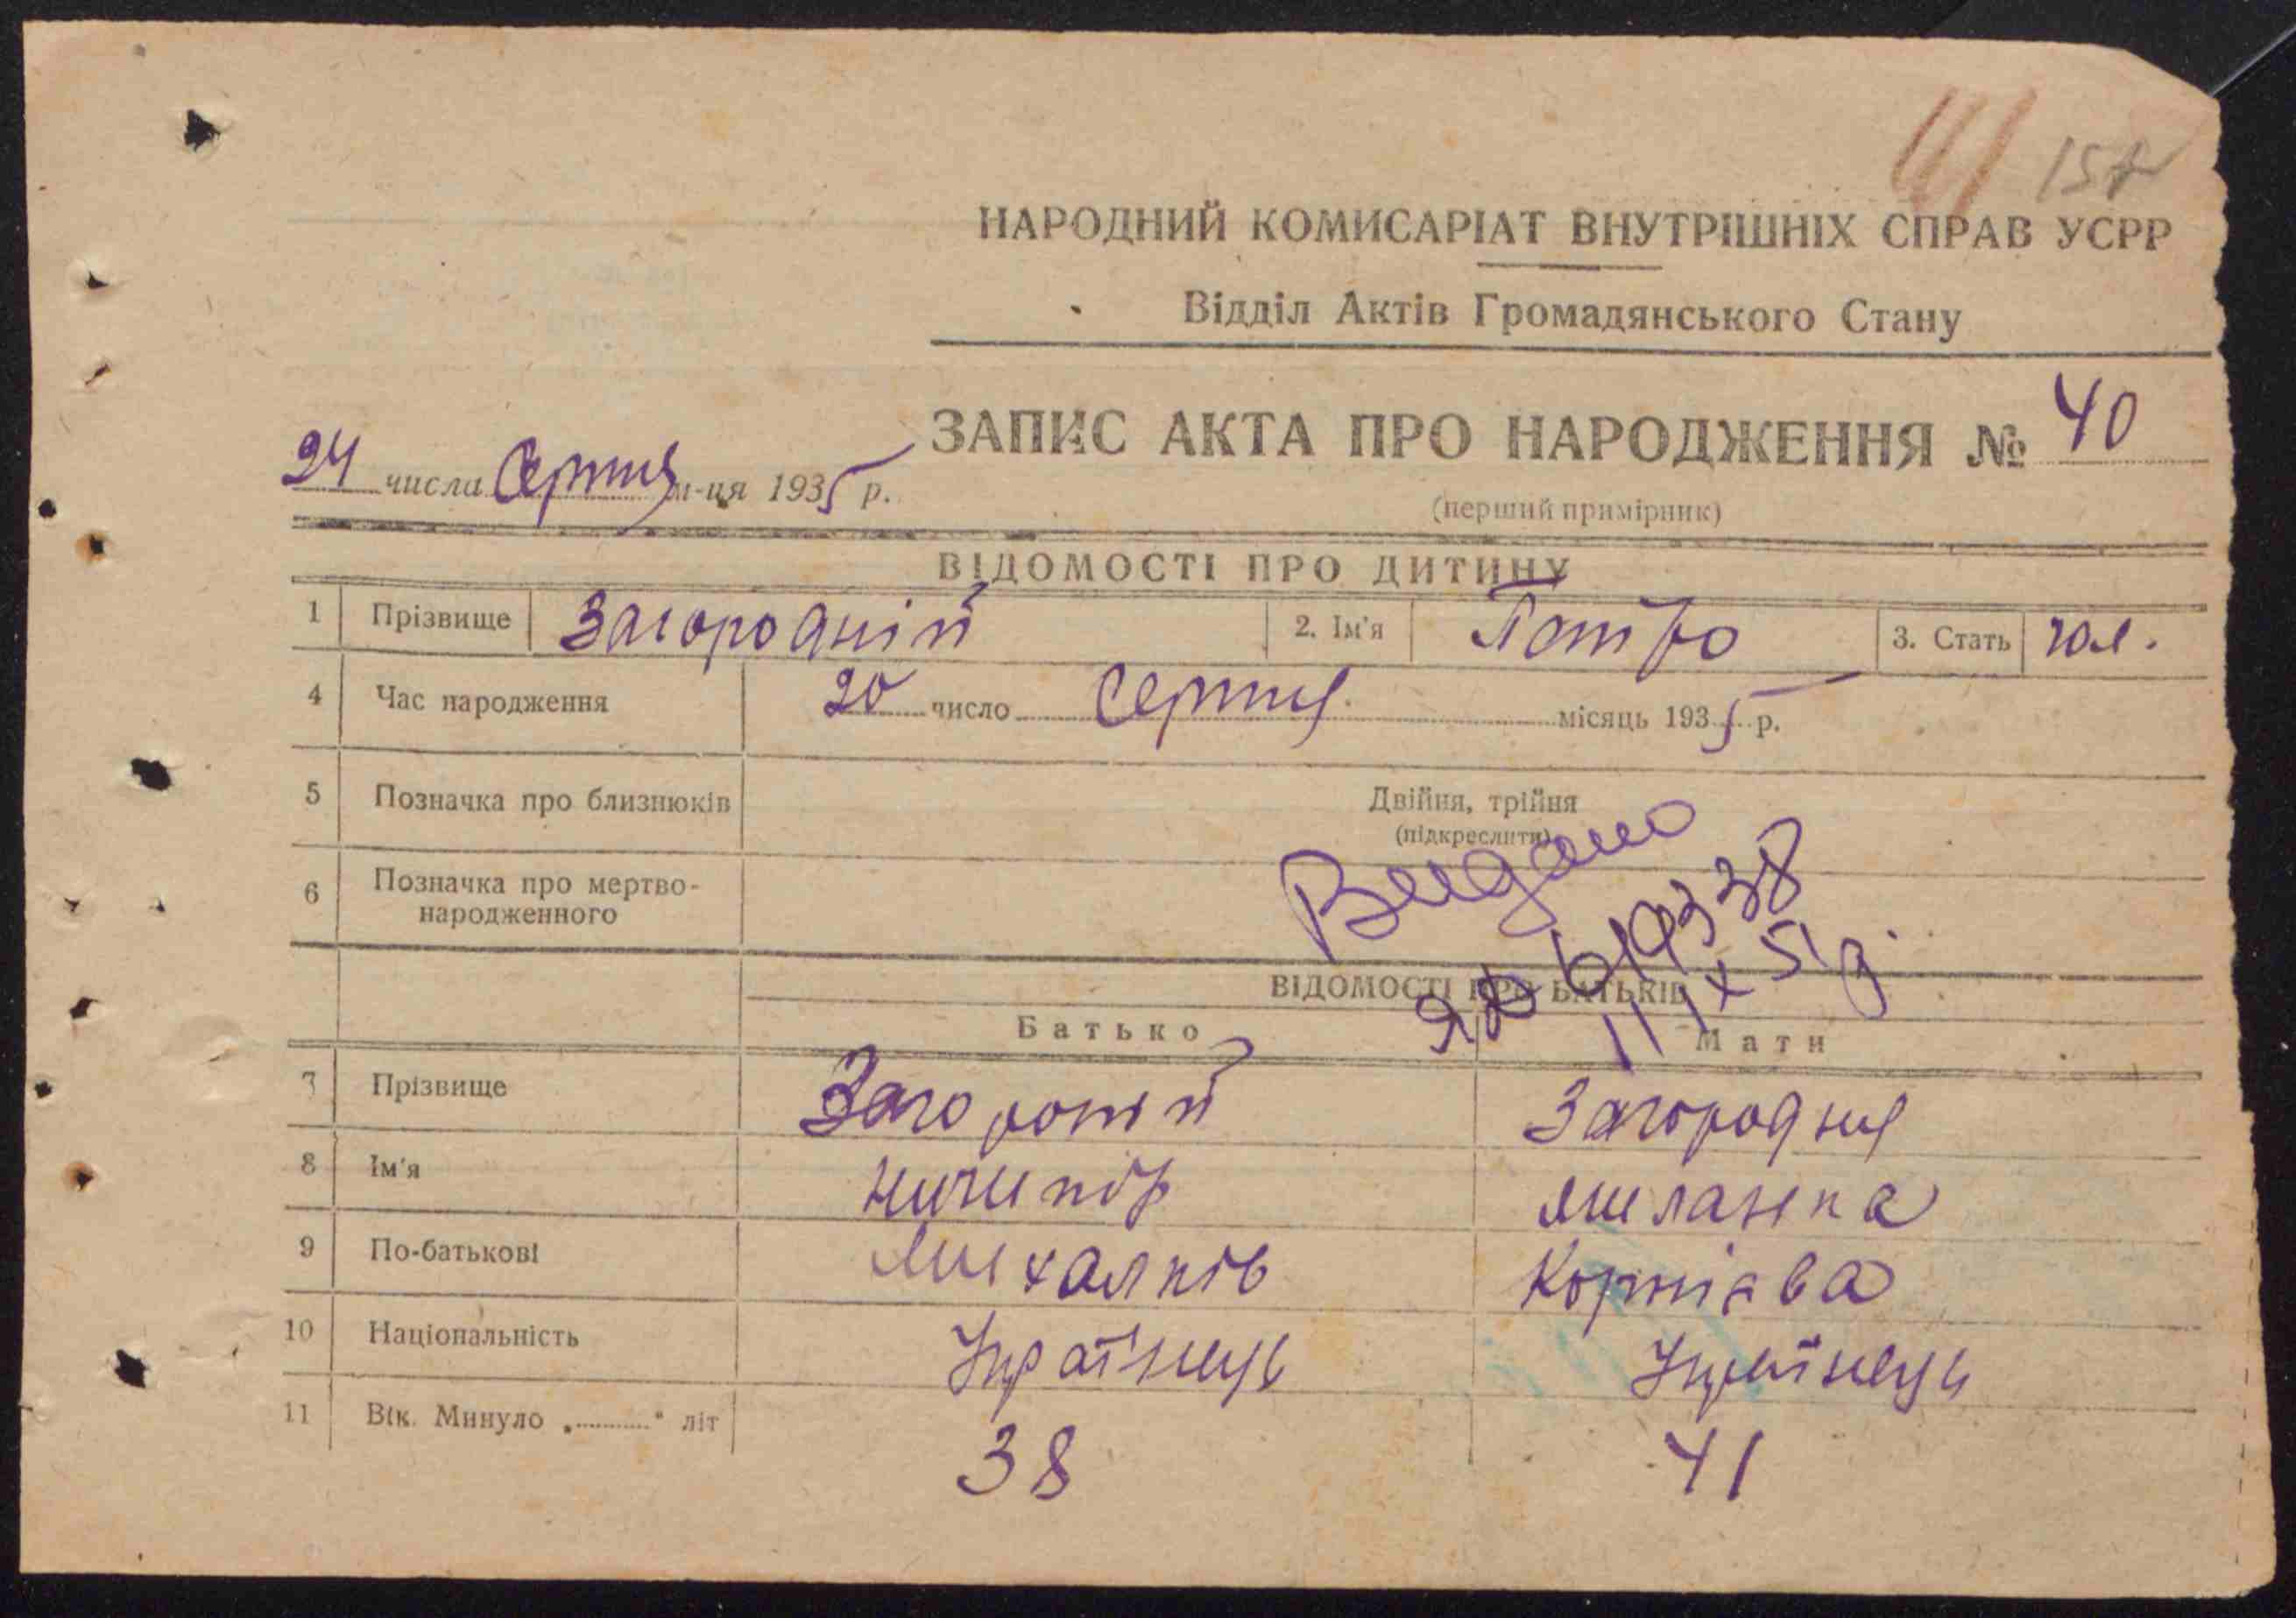 157
НАРОДНИЙ КОМИСАРІАТ ВНУТРІШНІХ СПРАВ УСРР
Відділ Актів Громадянського Стану
ЗАПИС АКТА ПРО НАРОДЖЕННЯ № 40
24 числа Серпня м-ця 1935 р.
(перший примірник)
ВІДОМОСТІ ПРО ДИТИНУ
1 Прізвище Загородній 2. Ім'я Петро 3. Стать чол.
4 Час народження 20 число Серпня місяць 1935 р.
5 Позначка про близнюків Двійня, трійня
(підкреслити)
6 Позначка про мертво-
народженного
Видано
ЯФ 619338
11 IX 51 р.
ВІДОМОСТІ ПРО БАТЬКІВ
Батько Мати
7 Прізвище Загороній Загородня
8 Ім'я Ничипір Миланка
9 По-батькові Михалків Корнієва
10 Національність Українець Українець
11 Вік. Минуло „ “ літ 38 41